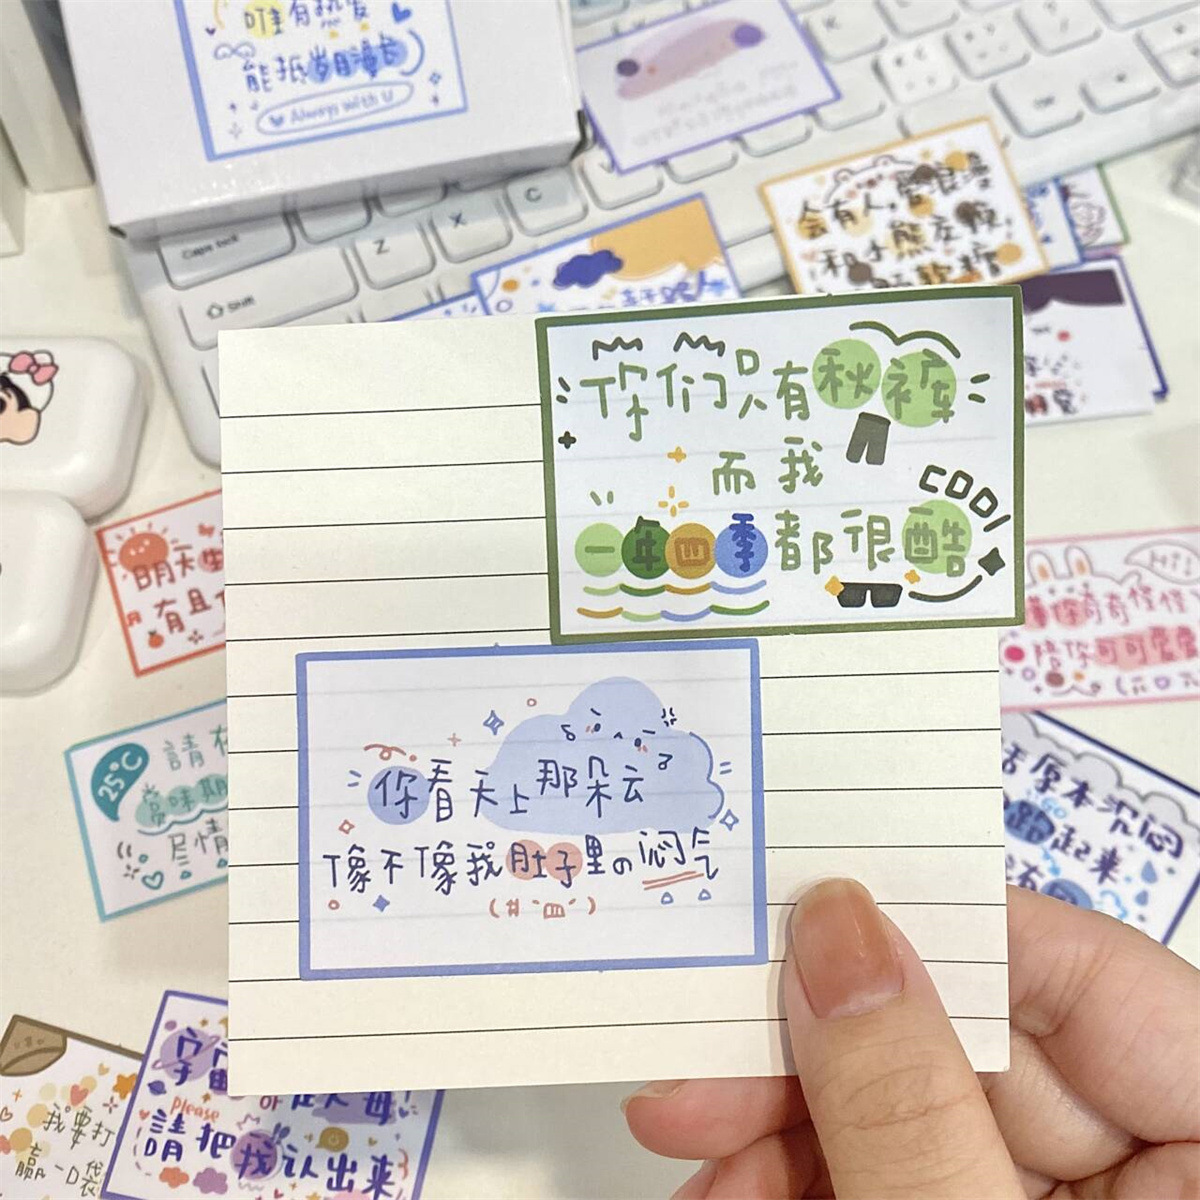 唯有热爱
能抵岁月漫长
Always with U
Caps lock
Shift
Z
X
C
会有人，
你们只有秋裤
而我
COOl
一年四季都很酷
你看天上那朵云
像不像我肚子里の闷气
明天
有且
Hi!
奇奇怪怪
陪你可可爱爱
25°C
請
賞味期
尽情
原本沉闷
GO
跑起来
没有
我要打
赢一口袋
宇宙
please
請把我认出来